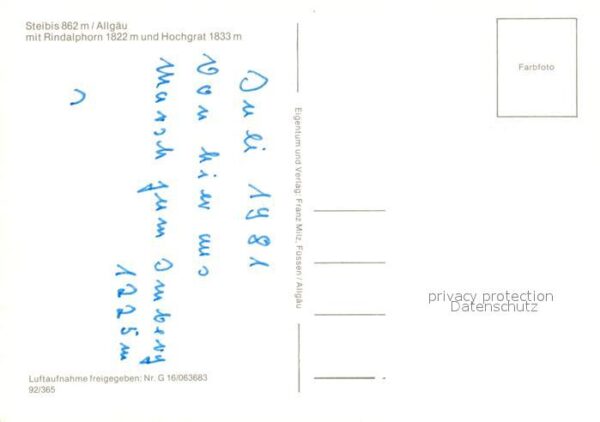 Steibis 862 m / Allgäu
mit Rindalphorn 1822 m und Hochgrat 1833 m
Juli 1981
Von hier aus
Marsch zum Imberg
1225 m
Eigentum und Verlag: Franz Milz, Füssen / Allgäu
Farbfoto
privacy protection
Datenschutz
Luftaufnahme freigegeben: Nr. G 16/063683
92/365